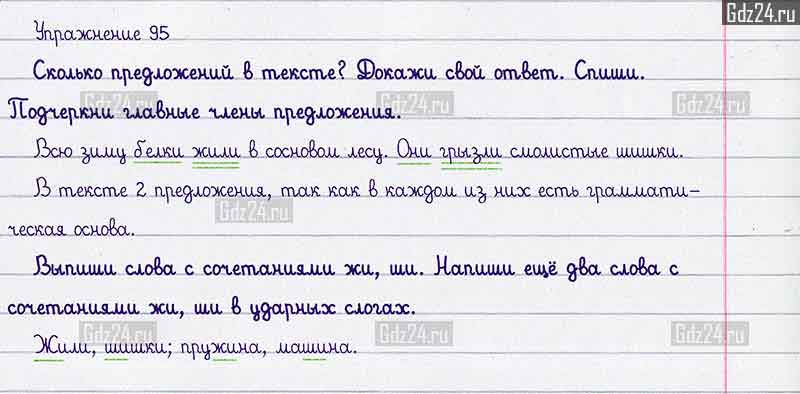 Gdz24.ru
Упражнение 95
Сколько предложений в тексте? Докажи свой ответ. Спиши.
Подчеркни главные члены предложения.
Gdz24.ru Gdz24.ru Gdz24.ru
Всю зиму белки жили в сосновом лесу. Они грызли смолистые шишки.
В тексте 2 предложения, так как в каждом из них есть граммати-
Gdz24.ru
ческая основа.
Выпиши слова с сочетаниями жи, ши. Напиши ещё два слова с
сочетаниями жи, ши в ударных слогах.
Gdz24.ru Gdz24.ru Gdz24.ru
Жили, шишки; пружина, машина.